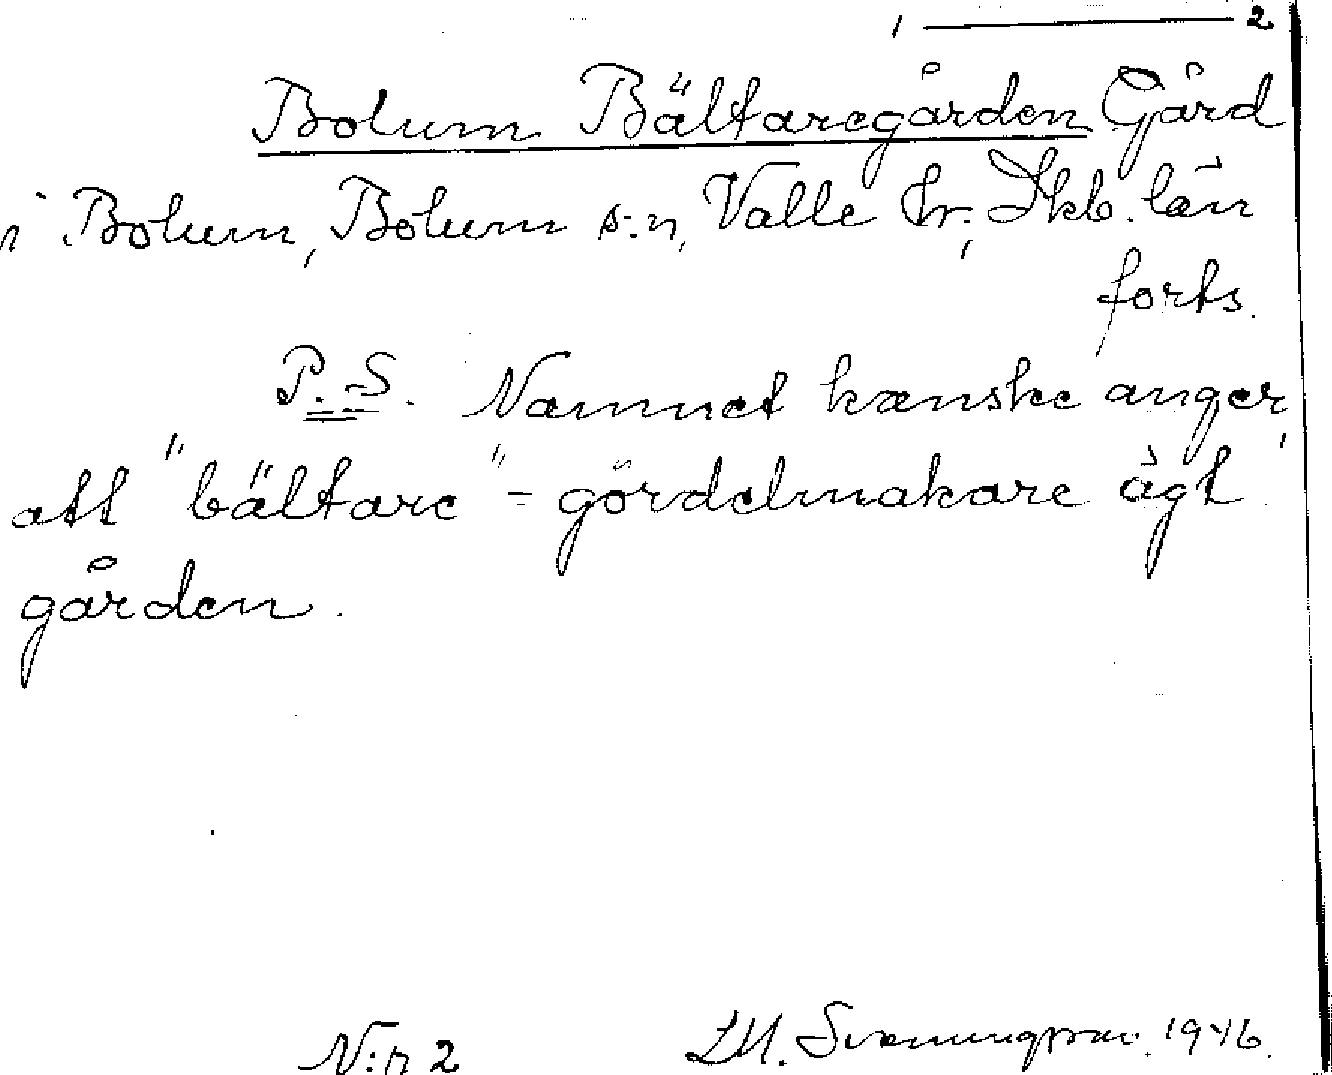 1 — 2
Bolum Bältaregården Gård
i Bolum, Bolum s:n, Valle hr; Skb. län
forts.
P.S. Namnet kanske anger,
att "bältare" = gördelmakare ägt
gården.
N:r 2
1946.